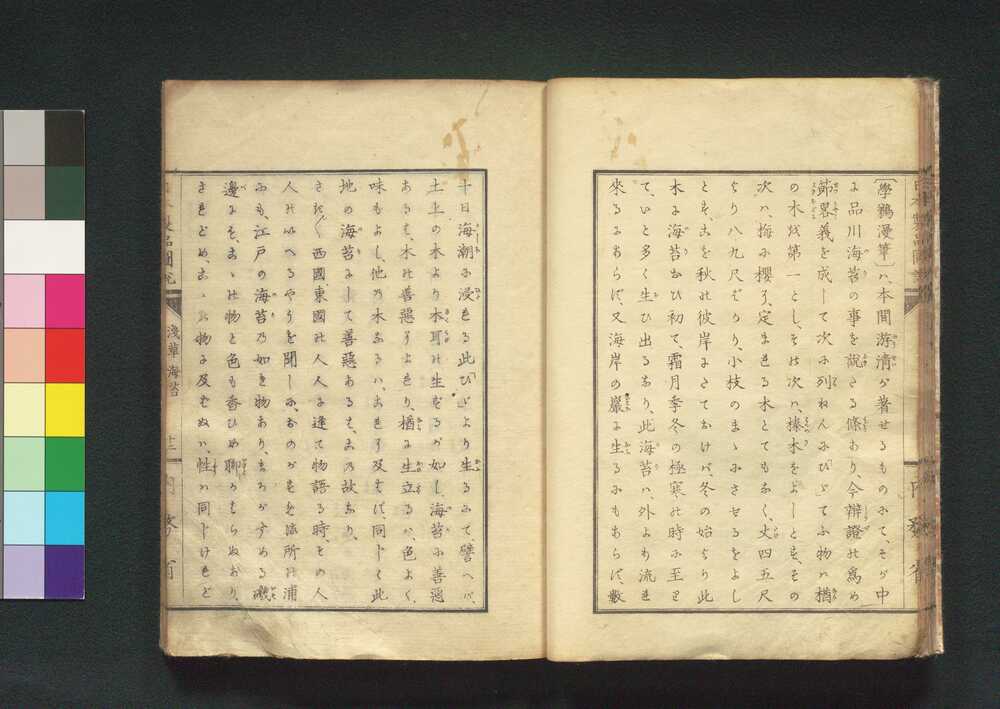 〔學鵡漫筆〕ハ、本間游清ガ著せるものにて、そが中
に品川海苔の事を說さる條あり、今辯證の爲め
節畧義を成して次に列ねんにびゞてふ物ハ楢
の木以第一とし、その次ハ、榛木をよしとす、その
次ハ、梅に櫻に、定まれる木とてもなく、丈四五尺
より八九尺ばかり、小枝のまゝにさせるをよし
とす、さを秋の彼岸にさておけバ冬の始より此
木に海苔おひ初て、霜月季冬の極寒の時に至り
て、いと多く生ひ出るなり、此海苔ハ、外より流れ
來るにあらず、又海岸の巖に生るにもあらず、數
十日海潮に浸れる此びゞより生るにて譬へバ、
土上の木より木耳の生ずるが如し、海苔に善惡
あるも、木の善惡によれり、楢に生立るハ、色よく、
味もよし、他の木なるハ、これに及ばず、同じく此
地の海苔にして善惡あるも、この故なり、
西國東國の人人に逢て物語る時、その人
人のいへるやうを聞しに、おのがすむ所の浦
にも、江戸の海苔の如き物あり、まろがすめる磯
邊にも、こゝの物と色も香ひも聊かはらぬあり、
きれども、こゝの物に及ばぬハ、性ハ同じけれど
淺草海苔